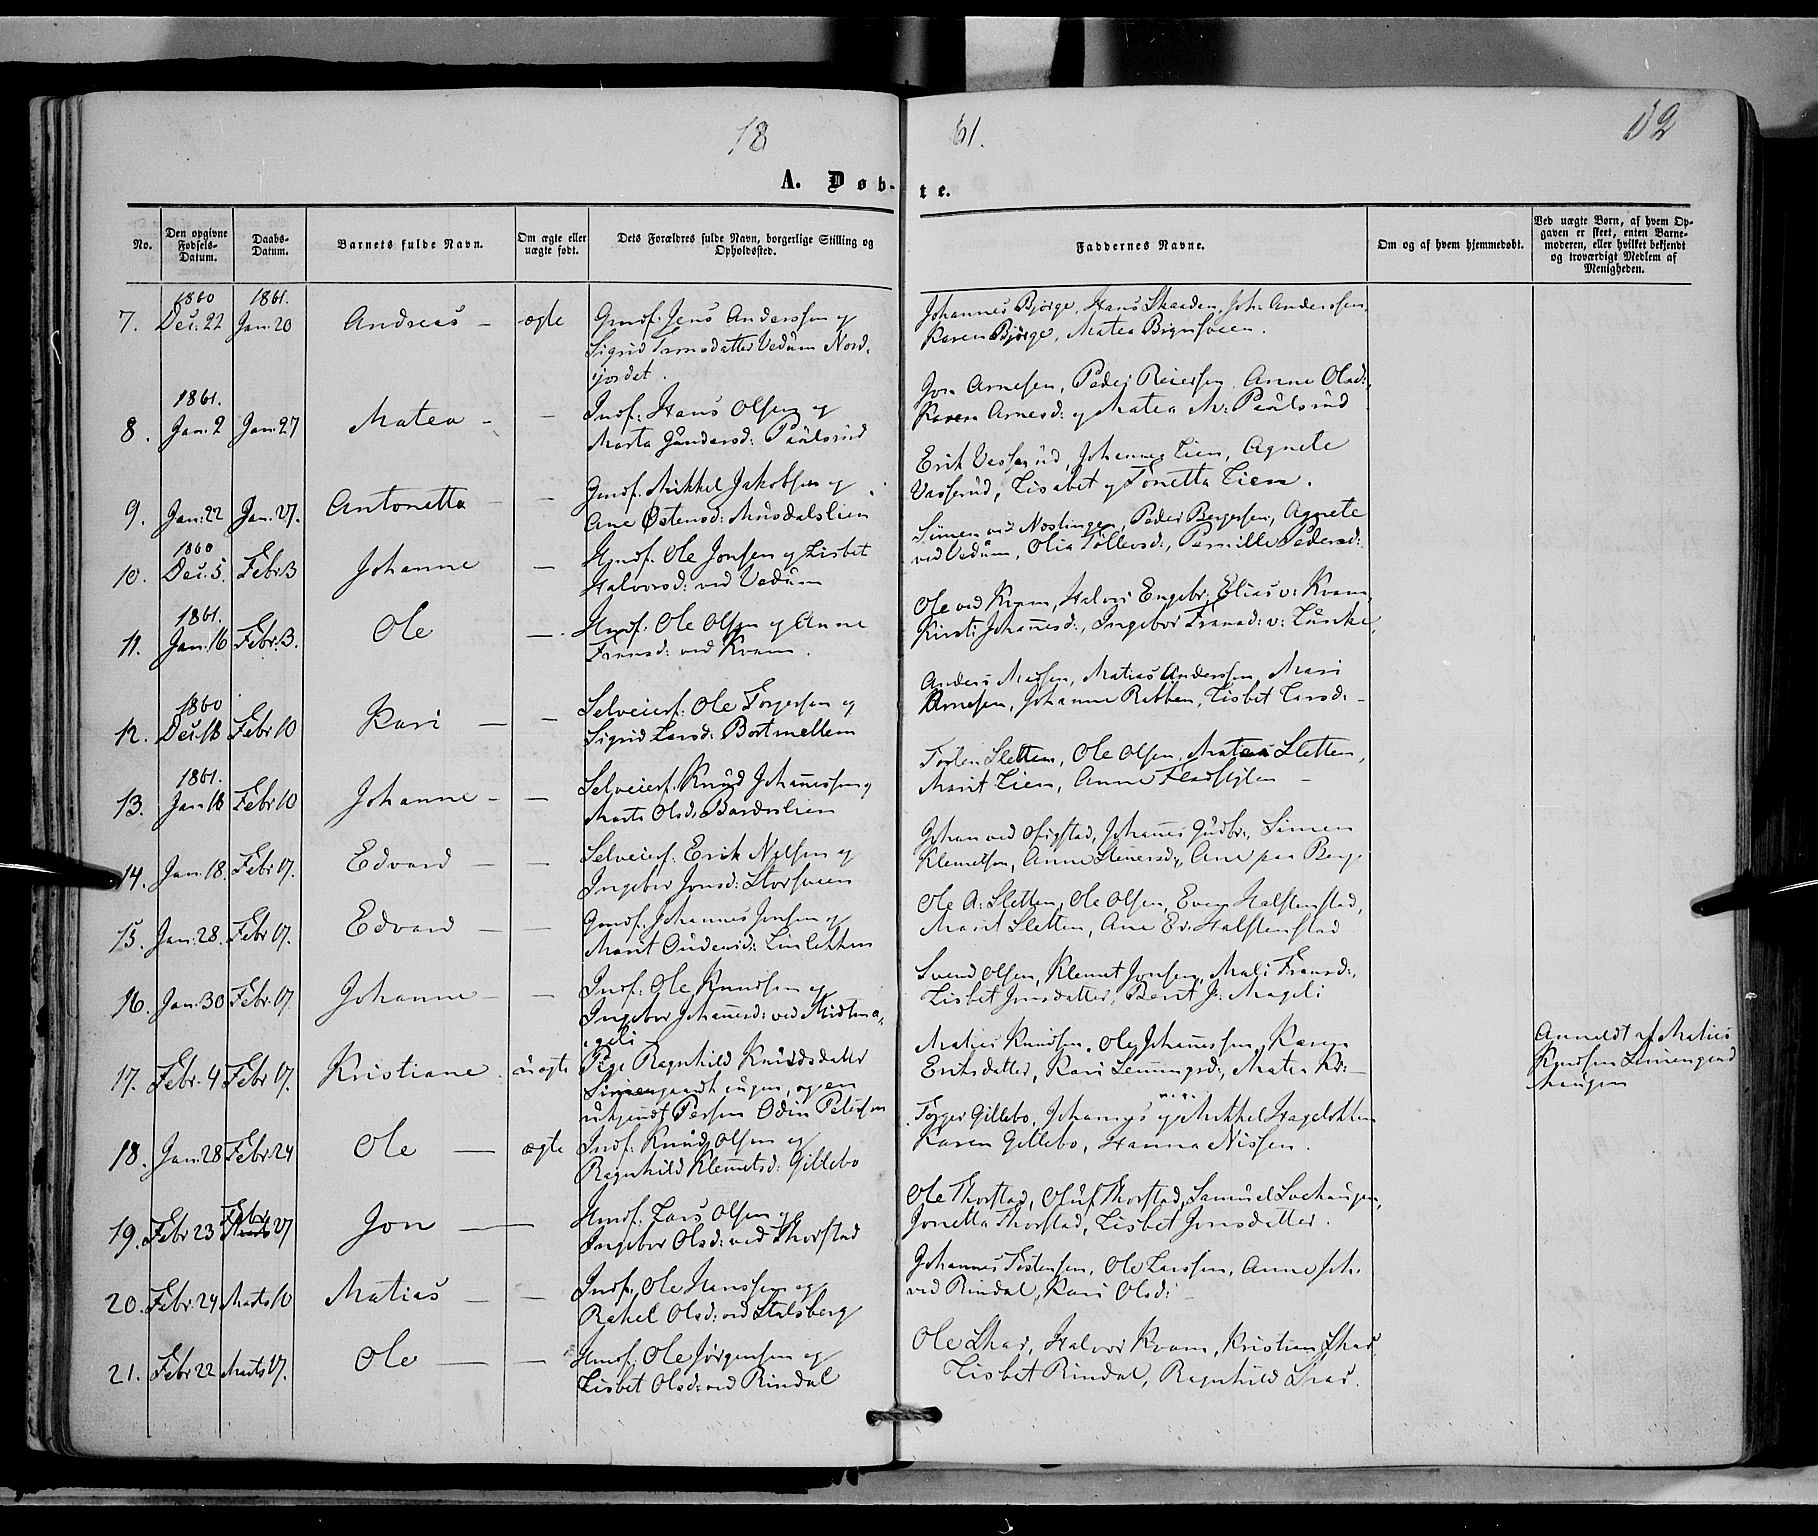 18 61.
A. Døb- te.
No.
Den opgivne Fødsels-Datum.
Daabs-Datum.
Barnets fulde Navn.
Om ægte eller uægte født.
Dets Forældres fulde Navn, borgerlige Stilling og Opholdssted.
Faddernes Navne.
Om og af hvem hjemmedøbt.
Ved uægte Børn, af hvem Opgaven er skeet, enten Barnemoderen, eller hvilket bekjendt og troværdigt Medlem af Menigheden.
1860 1861.
7. Dec: 22 Jan: 20 Andreas – ægte Gmdf: Jens Anderssen og
Sigrid Vedum Nord-
jordet.
Johannes Bjørge, Hans Skaaden, Joh: Anderssen,
Karen Bjørge, Matea
1861.
8. Jan: 2 Jan: 27 Matea – – Indf: Hans Olsen og
Marta Gundersd: Paulsrud
Jon Arnesen, Peder Reiersen, Anne Olsd:,
Karen Arnesd: og Matea M: Paulsrud
9. Jan: 22 Jan: 27. Antonetta – – Gmdf: Mikkel Jakobsen og
Ane Østensd: Musdalslien
Erik Vasrud, Johannes Lien, Agnete
Vasrud, Lisabet og Tonetta Lien.
1860
10. Dec: 5. Febr: 3 Johanne – Hmdf: Ole Jonsen og Lisbet
Halvorsd: ved Vedum
Simen ved Peder Bergersen, Agnete
ved Vedum, Olia Tollevsd:, Pernille Pedersd:
1861.
11. Jan: 16 Febr: 3. Ole –. Hmdf: Ole Olsen og Anne
Fransd: ved Kvam.
Ole ved Kvam, Halvor Engebr: Elias v: Kvam,
Kirsti Johannesd:, Ingebor Fransd: v: Lunke,
1860
12. Dec: 18 Febr: 10 Kari – – Selveierf: Ole Torgersen og
Sigrid Larsd: Bortmellem
Anders Madsen, Matias Anderssen, Mari
Arnesen, Johanne Rabben, Lisbet Larsd: –
1861.
13. Jan: 18 Febr: 10 Johanne – – Selveierf. Knud Johannessen og
Marte Olsd: Baardslien
Torsten Sletten, Ole Olsen, Matea Sletten,
Marit Lien, Anne –
14. Jan: 18. Febr: 17. Edvard – – Selveierf: Erik Nilsen og
Ingebor Jonsd: Storsveen
Johan ved Johannes Gudbr:, Simen
Klemetsen, Anne Ane paa Berge
15. Jan: 28. Febr: 17. Edvard – – Gmdf: Johannes Jonsen og
Marit Linløkken
Ole A: Sletten, Ole Olsen, Even Halstenstad,
Marit Sletten, Ane Ev: Halstenstad
16. Jan: 30 Febr: 17. Johanne – – Indf: Ole Knudsen og
Ingebor Johannesd: ved Midtma-
geli
Svend Olsen, Klemet Jonsen, Mali Fransd:,
Lisbet Jonsdatter, Berit J: Mageli
17. Febr: 4 Febr: 17. Kristiane uægte Pige Ragnhild Knudsdatter
og en
ukjendt Person Odin Petersen
Matias Knudsen, Ole Johannessen, Karen
Eriksdatter, Kari Matea Kr: –
Anmeldt af Matias
Knudsen
Haugen
18. Jan: 28 Febr: 24 Ole – ægte Indf: Knud Olsen og
Ragnhild Klemetsd: Gillebo
Torger Gillebo, Johannes og Mikkel Hageløkken
Karen Gillebo, Hanna Nissen.
19. Febr: 23 Febr 27 Jon – – Hmdf: Lars Olsen og
Ingebor Olsd: ved Thorstad
Ole Thorstad, Oluf Thorstad, Samuel
Jonetta Thorstad, Lisbet Jonsdatter.
20. Febr: 24 Marts 10 Matias – – Indf: Ole Hanssen og
Rakel Olsd: ved Stalsberg
Johannes Tostensen, Ole Larssen, Anne Joh:
ved Rindal, Kari Olsd:
21. Febr: 22 Marts 17. Ole – – Hmdf: Ole Jørgensen og
Lisbet Olsd: ved Rindal
Ole Skar, Halvor Kvam, Kristian Skar
Lisbet Rindal, Ragnhild Skar.